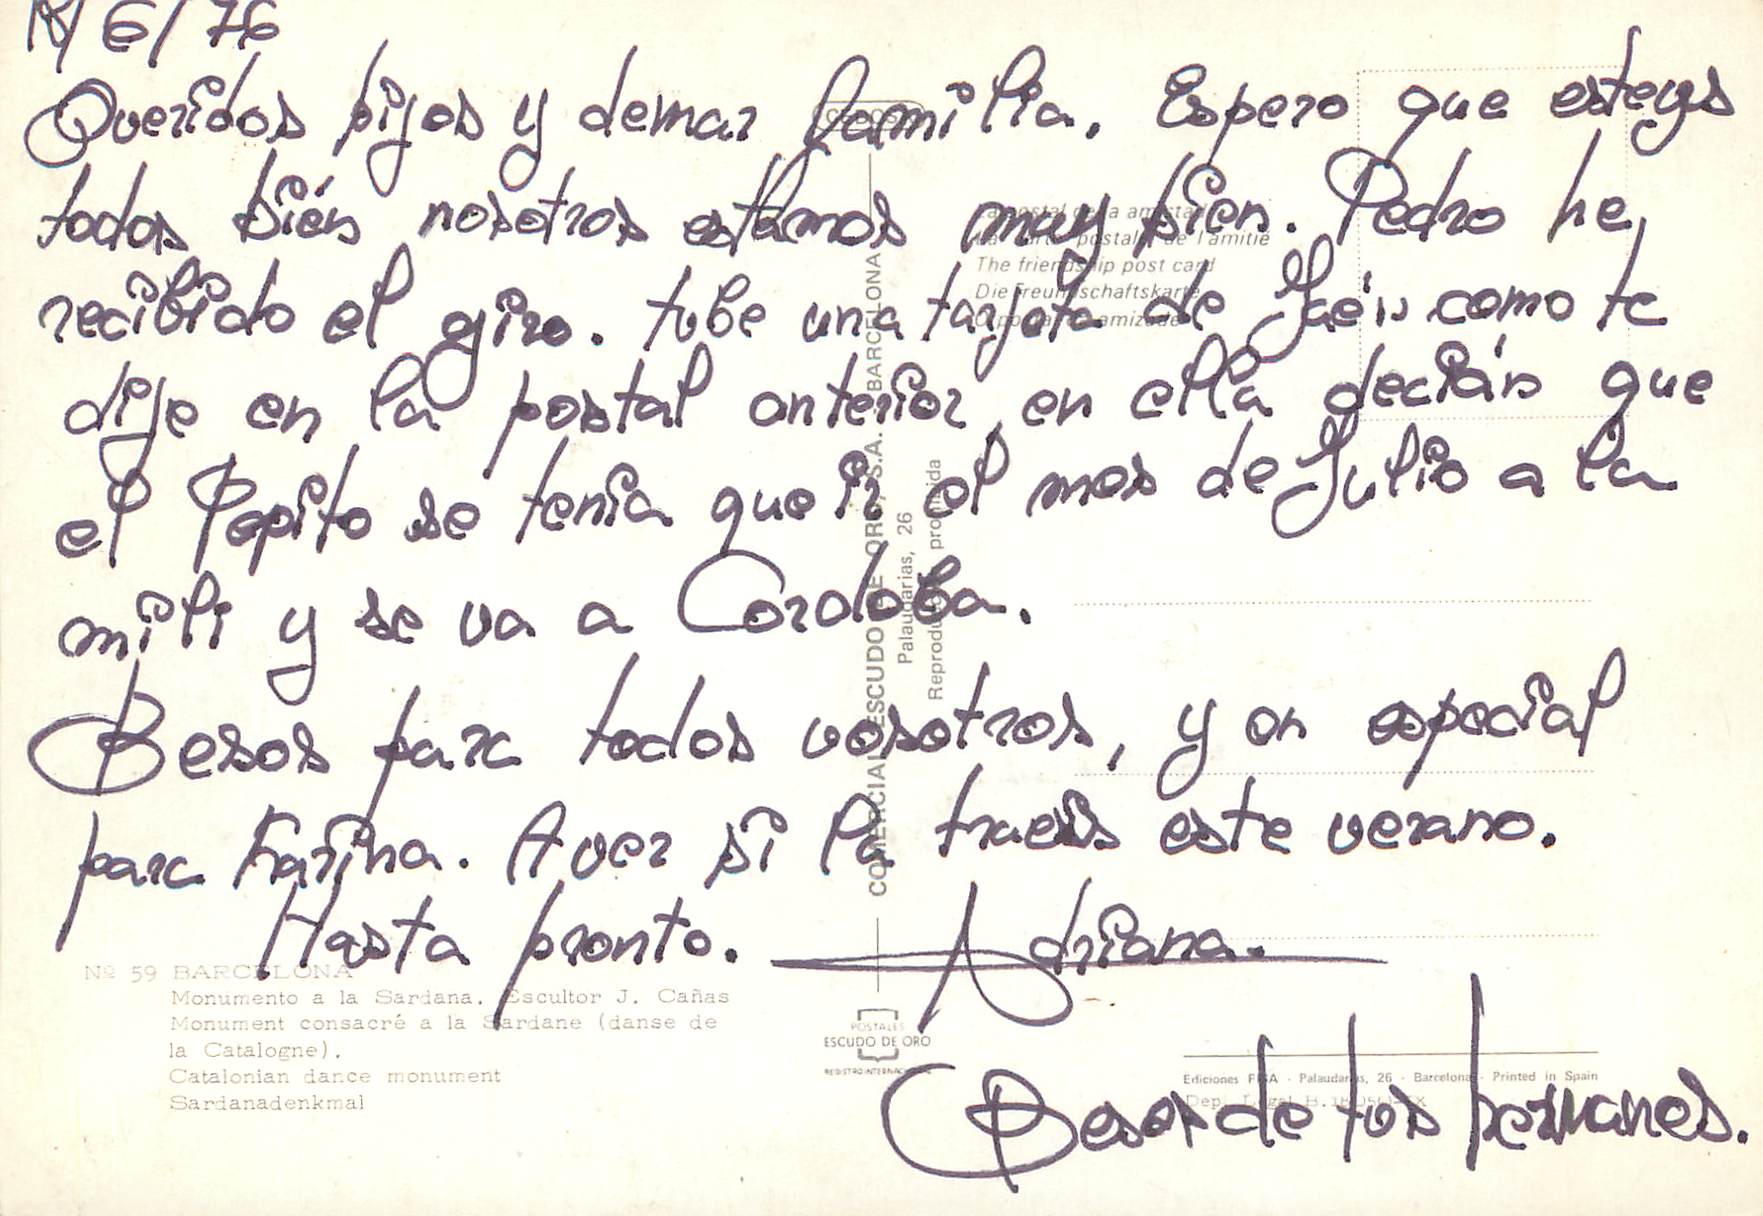 18/6/76
Queridos hijos y demar familia. Espero que esteys
todos bién nosotros estamos muy bien. Pedro he
recibido el giro. tube una tarjeta de Jaén como te
dije en la postal anterior, en ella deciáis que
el Pepito se tenia que ir el mes de Julio a la
mili y se va a Cordoba.
Besos para todos vosotros, y en especial
para Karina. A ver si la traeis este verano.
Hasta pronto. Adriana.
Besos de tus hermanos.
La postal de la amistad
La carte postale de l'amitié
The friendship post card
Die Freundschaftskarte
COMERCIAL ESCUDO DE ORO, S.A. BARCELONA
Palaudarias, 26
Reproducción prohibida
Nº 59 BARCELONA
Monumento a la Sardana. Escultor J. Cañas
Monument consacré a la Sardane (danse de
la Catalogne).
Catalonian dance monument
Sardanadenkmal
POSTALES
ESCUDO DE ORO
REGISTRO INTERNACIONAL
Ediciones FISA - Palaudarias, 26 - Barcelona - Printed in Spain
Dep. Legal B.